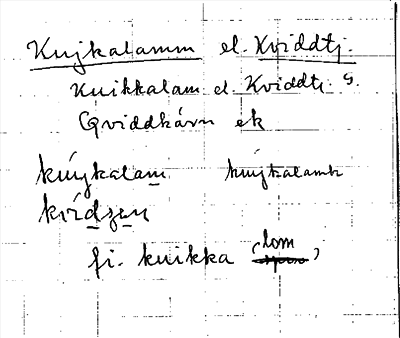 Kujkalamm el. Kviddtj.
Kuikkalam el. Kviddtj s.
Qviddkávrr ek
kújkalam kújkalamb
kvídzen
fi. kuikka (lom)